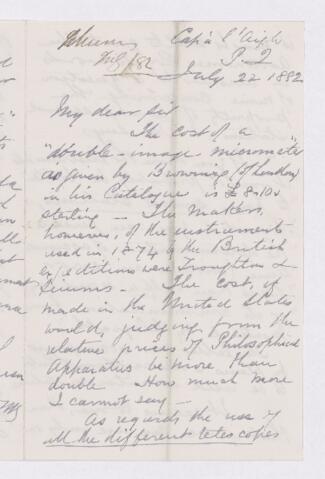 Cap à l'Aigle
July /82
P. Q
July 22 1882
My dear Sir
The cost of a
"double-image micrometer
as given by Browning (of London)
in his Catalogue is £8.10.
sterling — The makers,
however, of the instruments
used in 1874 by the British
expeditions were Troughton &
Simms — The cost, if
made in the United States
would, judging from the
relative prices of Philosophical
Apparatus be more than
double How much more
I cannot say —
As regards the use of
all the different telescopes